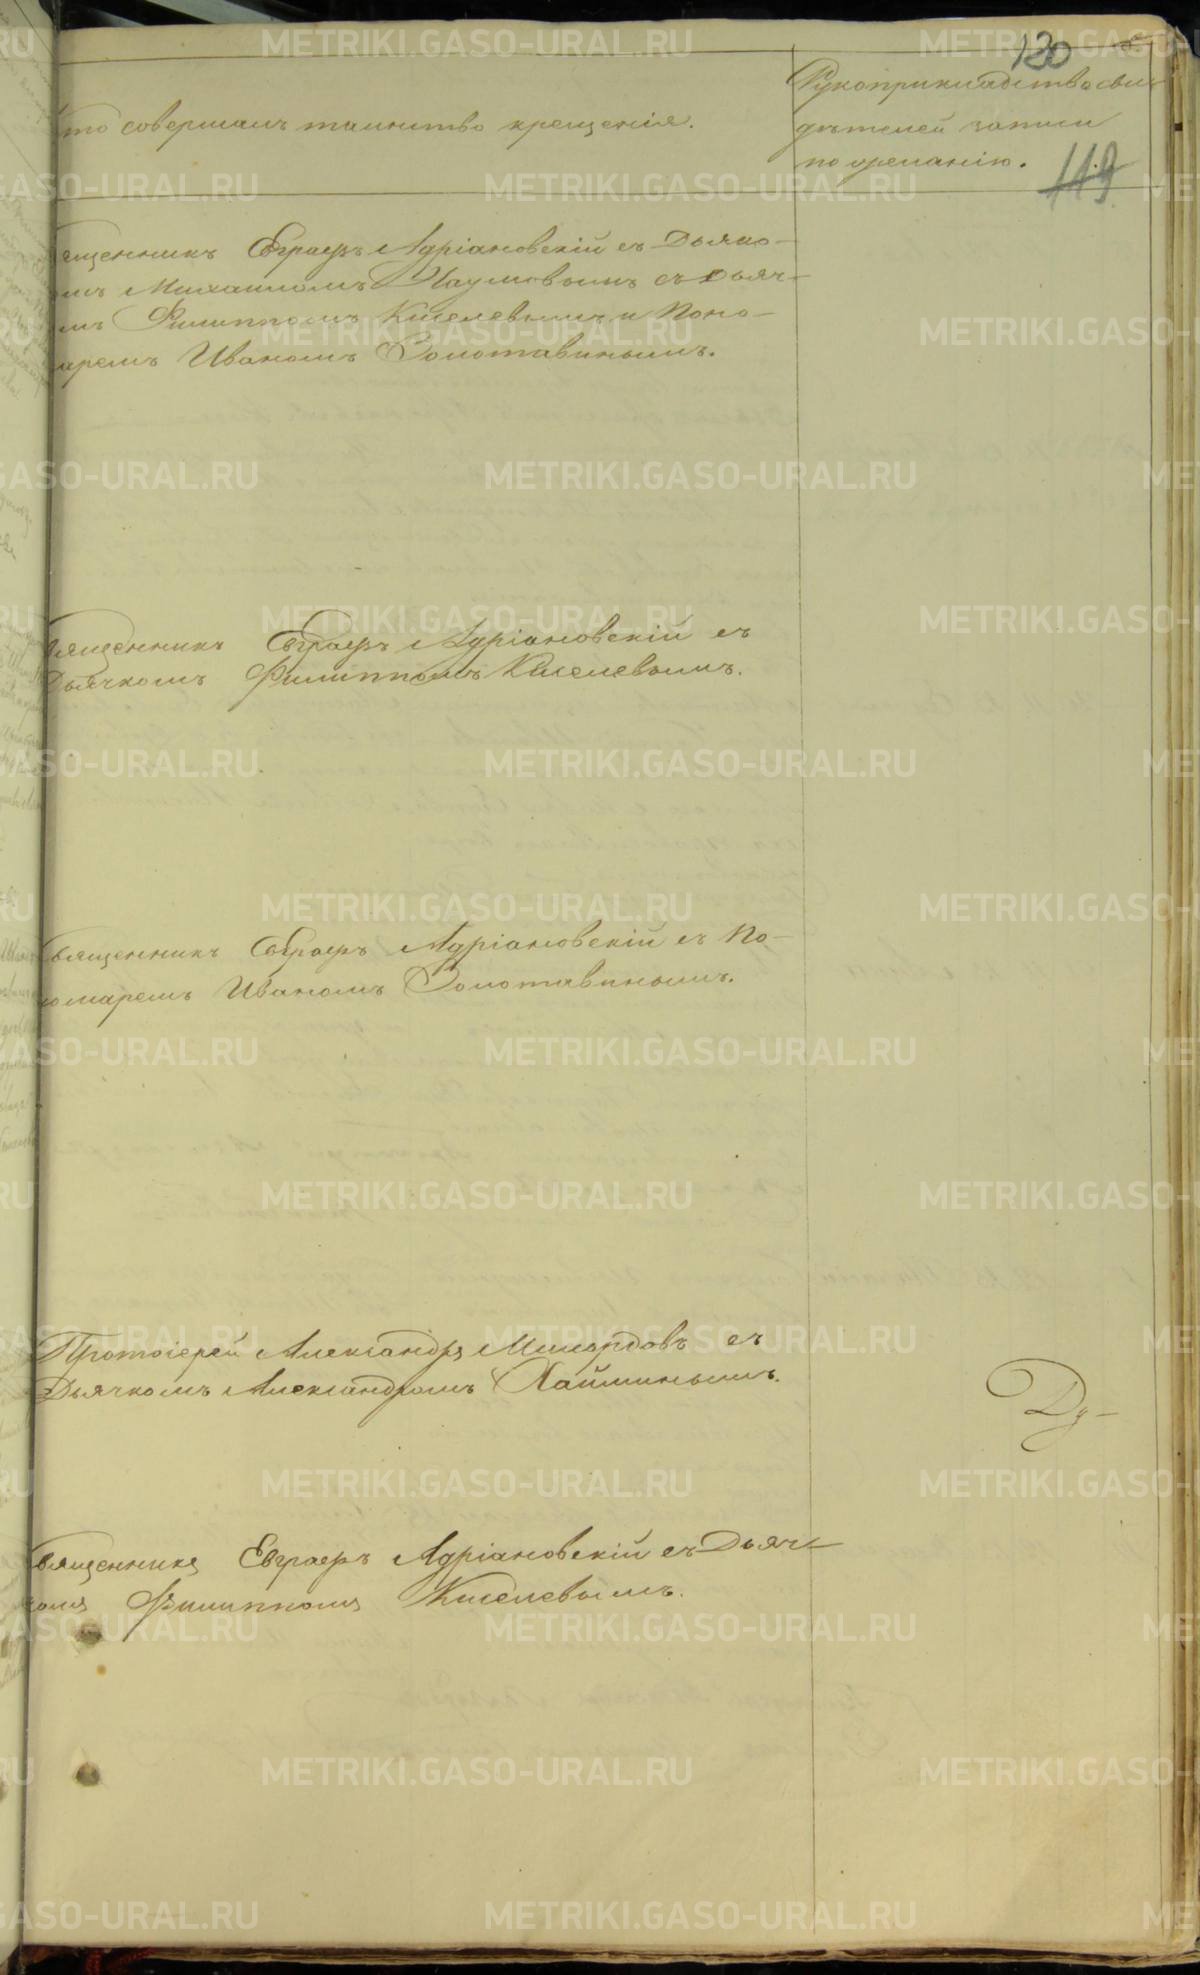 130
Рукоприкладство сви-
то совершалъ таинство крещенія.
дѣтелей записи
по желанію.
119
ященникъ Евграфъ Адріановскій съ Дьяко-
мъ Михаиломъ Наумовымъ съ Дьяч-
мъ Филиппомъ Киселевымъ и Поно-
аремъ Иваномъ Золотавинымъ.
вященникъ Евграфъ Адріановскій съ
Дьячкомъ Филиппомъ Киселевымъ.
Священникъ Евграфъ Адріановскій съ По-
номаремъ Иваномъ Золотавинымъ.
Протоіерей Александръ Милордовъ съ
Дьячкомъ Александромъ Хайминымъ.
Ду-
вященникъ Евграфъ Адріановскій съ Дьяч-
комъ Филиппомъ Киселевымъ.
METRIKI.GASO-URAL.RU